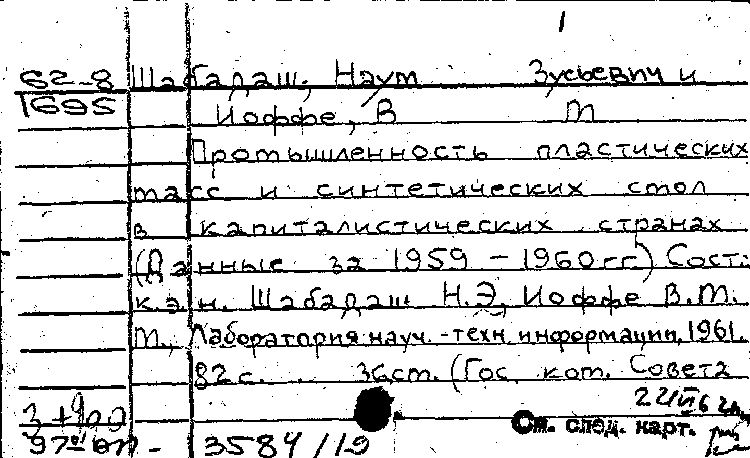 1
62-8 Шабадаш, Наум Зусьевич и
1695 Иоффе, В М
Промышленность пластических
масс и синтетических смол
в капиталистических странах
(Данные за 1959 - 1960 гг.) Сост.:
к.э.н. Шабадаш Н.З., Иоффе В.М.
М., Лаборатория науч.-техн. информации, 1961.
82 с. заст. (Гос. ком. Совета
22 II 62
См. след. карт.
3584/19